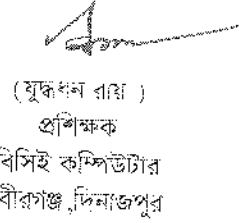 (যুদ্ধধন রায় )
প্রশিক্ষক
বিসিই কম্পিউটার
বীরগঞ্জ ,দিনাজপুর